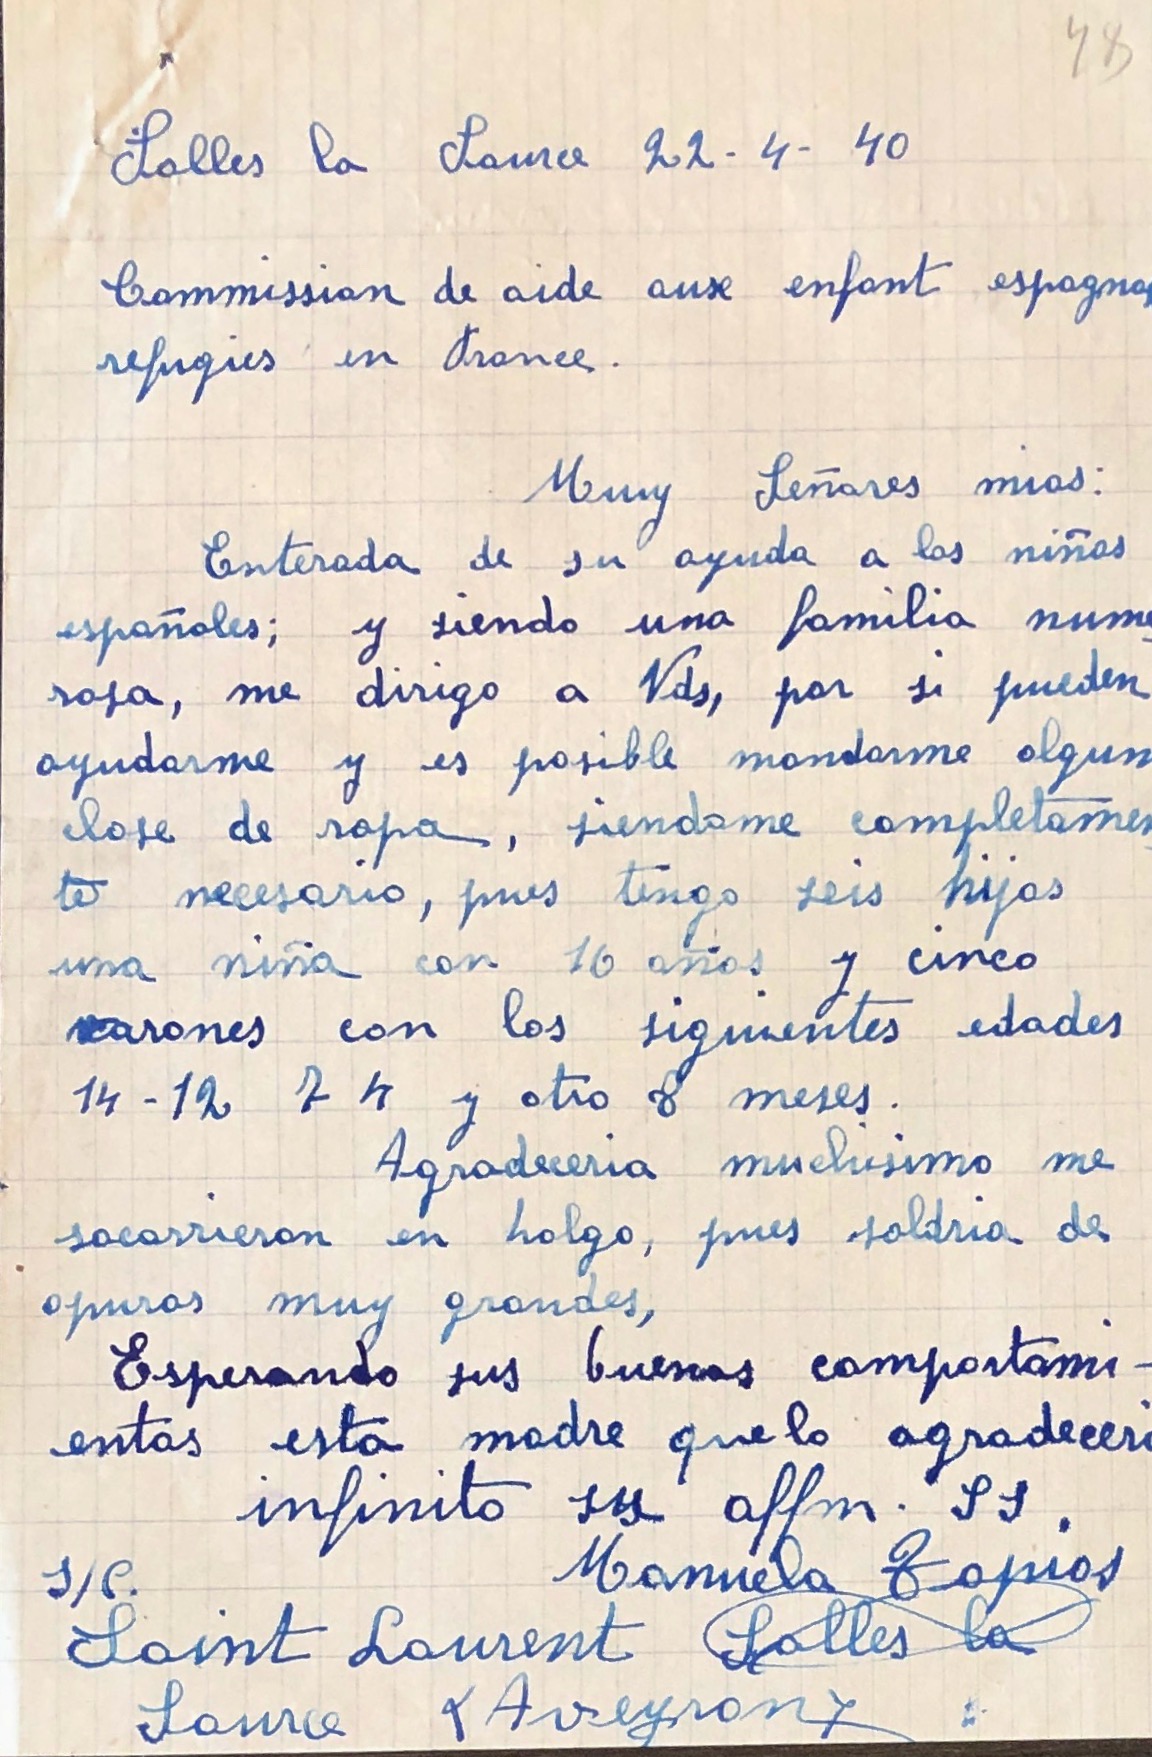 48
Salles la Source 22-4-40
Commission de aide aux enfant espagnos
refugies en France.
Muy Señores mios:
Enterada de su ayuda a los niños
españoles; y siendo una familia nume
rosa, me dirigo a Vds, por si pueden
ayudarme y es posible mandarme algun
clase de ropa, siendome completamen
te necesario, pues tengo seis hijos
una niña con 16 años y cinco
varones con los siguientes edades
14-12 7 4 y otro 8 meses.
Agradeceria muchisimo me
socorrieron en halgo, pues saldria de
apuros muy grandes,
Esperando sus buenos comportami-
entos esta madre que lo agradeceri
infinito su affm. SS.
Manuela Tapias
S/C.
Saint Laurent Salles la
Source (Aveyron)